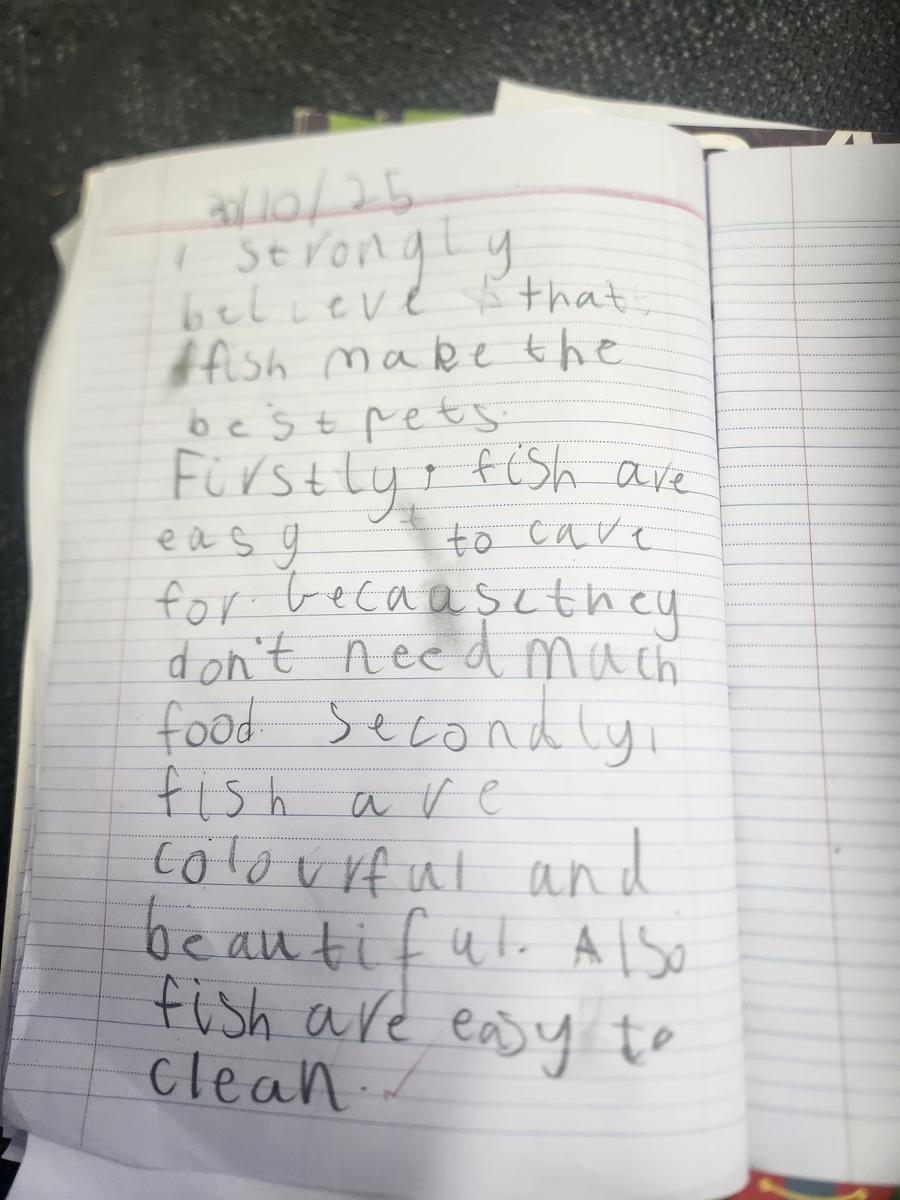 30/10/25
I strongly
believe that
fish make the
best pets.
Firstly, fish are
easy to care
for because they
don't need much
food. Secondly,
fish are
colourful and
beautiful. Also
fish are easy to
clean.